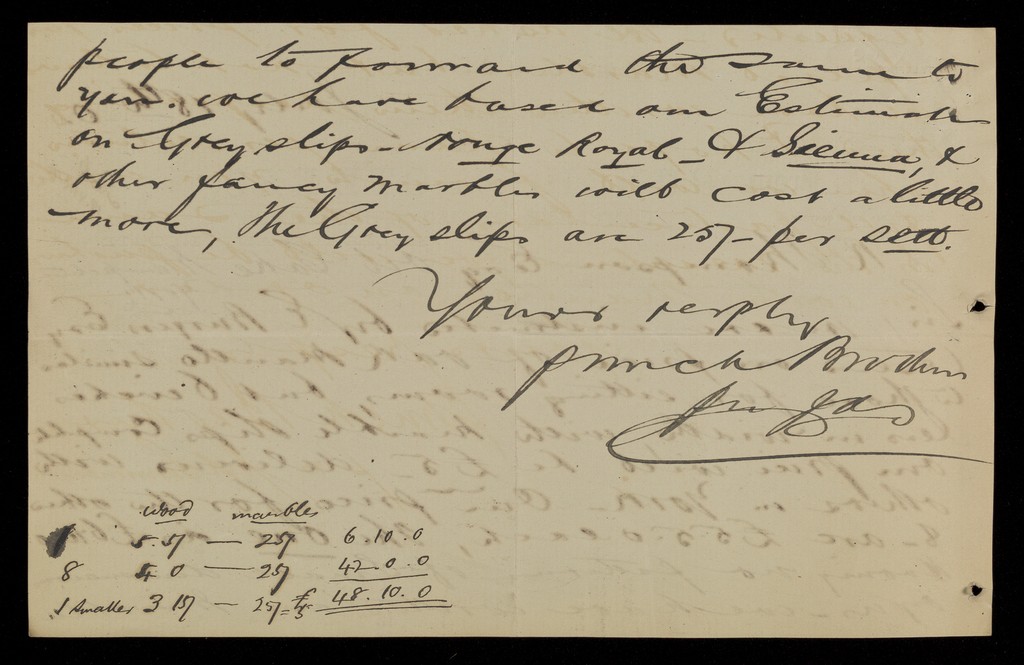 people to forward the same to
you. we have based our Estimate
on Grey slips - Rouge Royal - & Sienna, &
other fancy marbles will cost a little
more, The Grey slips are 25/- per sett.
Yours resply
Brothers
wood marbles
1 5.5/ — 25/ 6.10.0
8 4 0 — 25/ 42.0.0
1 smaller 3 15/ — 25/ = £5 £48.10.0